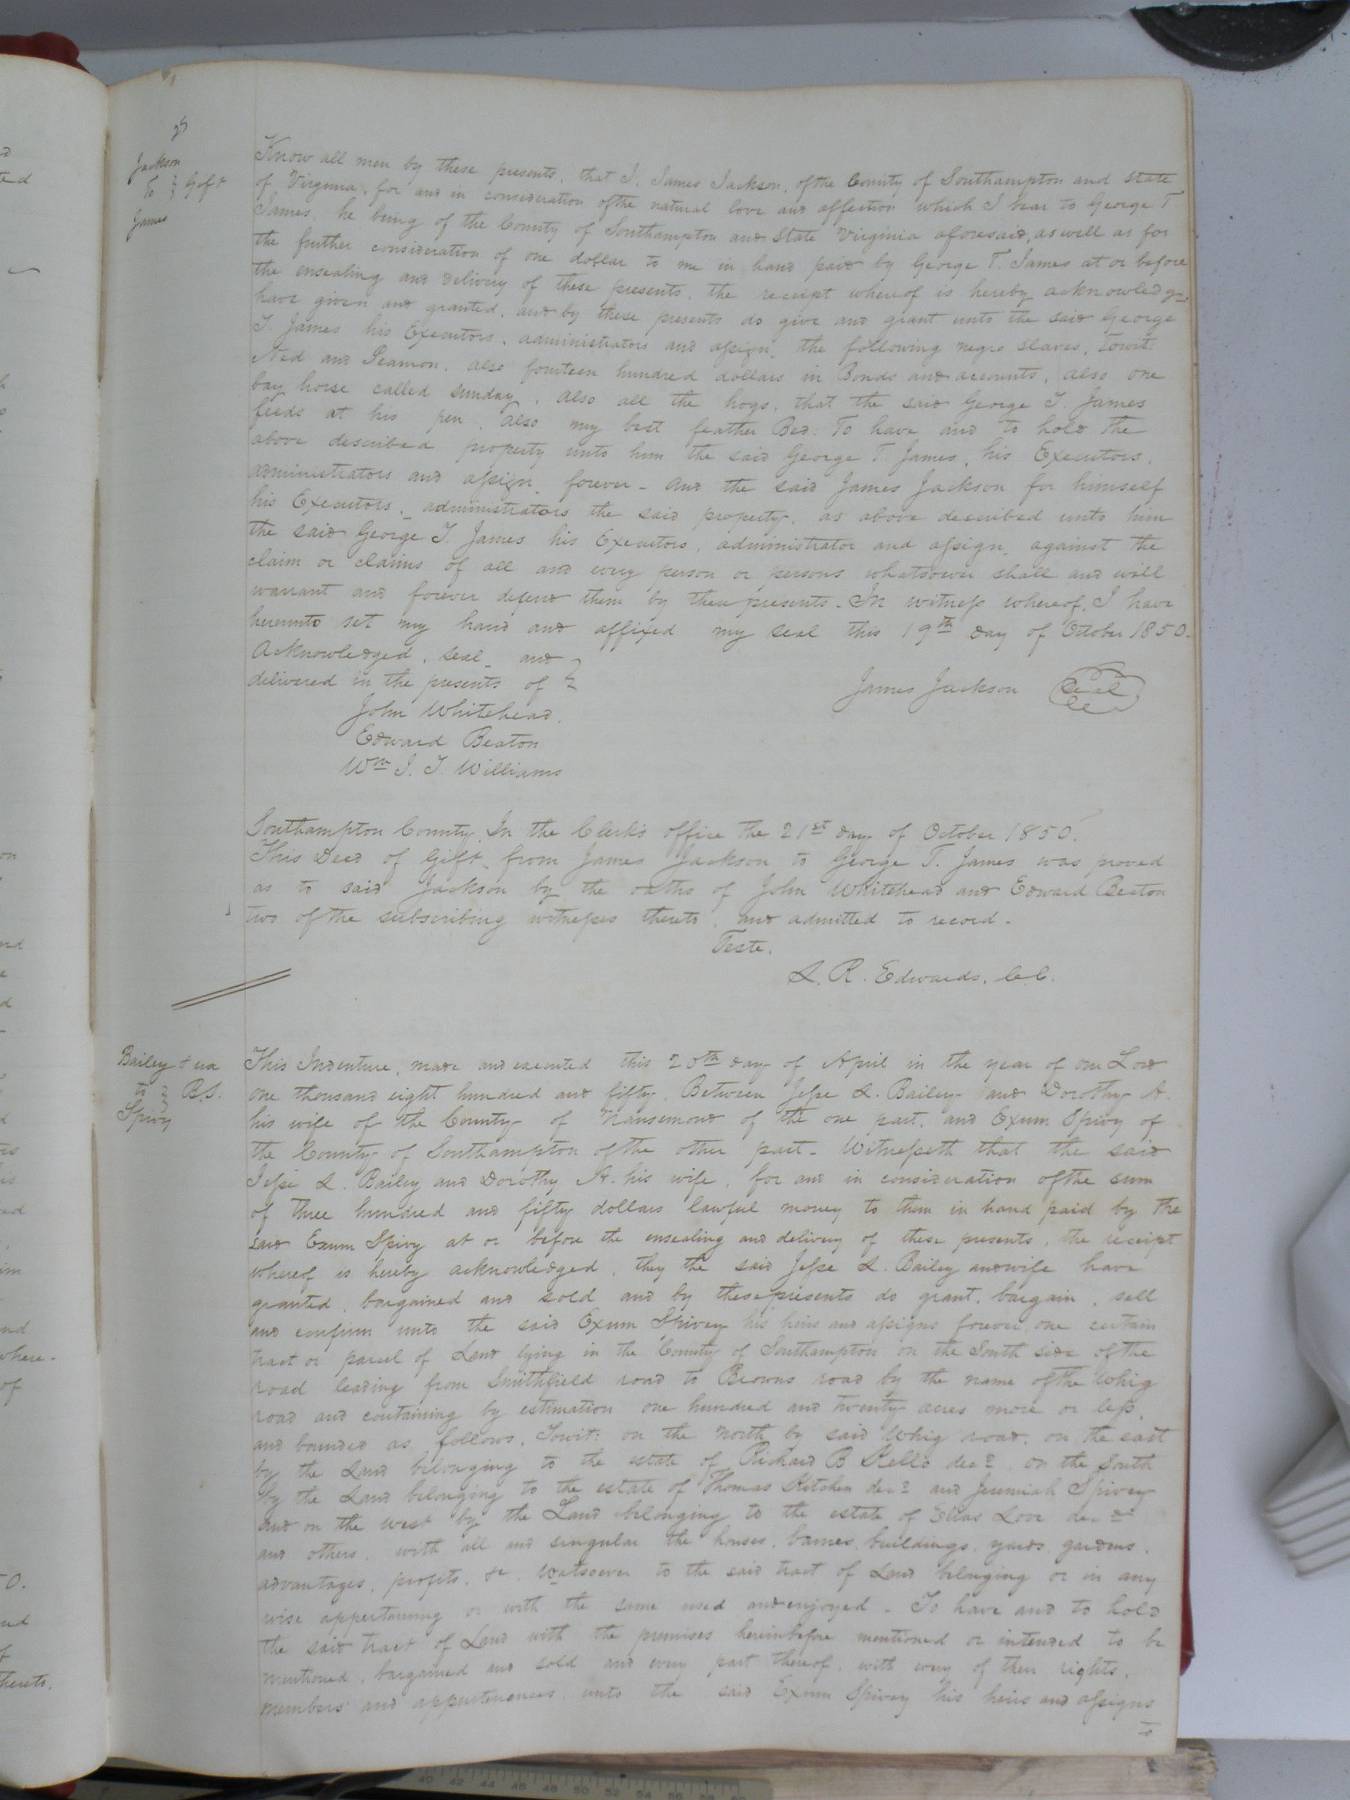 Jackson
to } Gift
James
Know all men by these presents, that I, James Jackson, of the County of Southampton and State
of Virginia, for and in consideration of the natural love and affection which I bear to George T
James, he being of the County of Southampton and State Virginia aforesaid, as well as for
the further consideration of one dollar to me in hand paid by George T. James at or before
the ensealing and delivery of these presents, the receipt whereof is hereby acknowledge
have given and granted, and by these presents do give and grant unto the said George
T. James his Executors, administrators and assign, the following negro slaves, towit
Ned and Seamon, also fourteen hundred dollars in Bonds and accounts, also one
bay horse called Sunday, also all the hogs, that the said George T. James
feeds at his pen, also my best feather Bed. To have and to hold the
above described property unto him the said George T. James, his Executors,
administrators and assign, forever - And the said James Jackson for himself
his Executors, administrators the said property, as above described unto him
the said George T. James his Executors, administrator and assign, against the
claim or claims of all and every person or persons whatsoever shall and will
warrant and forever defend them by these presents - In witness whereof, I have
hereunto set my hand and affixed my seal this 19th day of October 1850.
Acknowledged, seal, and
delivered in the presents of }
James Jackson Seal
John Whitehead.
Edward Beaton
Wm J. T. Williams
Southampton County. In the Clerk's office the 21st day of October 1850.
This Deed of Gift, from James Jackson to George T. James was proved
as to said Jackson by the oaths of John Whitehead and Edward Beaton
two of the subscribing witnesses thereto, and admitted to record.
Teste.
L. R. Edwards, C.C.
Bailey & ux
to } B.S.
Spivy
This Indenture, made and executed this 20th day of April in the year of our Lord
one thousand eight hundred and fifty, Between Jesse L. Bailey and Dorothy A.
his wife of the County of Nansemond of the one part, and Exum Spivy of
the County of Southampton of the other part - Witnesseth that the said
Jesse L. Bailey and Dorothy A. his wife, for and in consideration of the sum
of three hundred and fifty dollars lawful money to them in hand paid by the
said Exum Spivy at or before the ensealing and delivery of these presents, the receipt
whereof is hereby acknowledged, they the said Jesse L. Bailey and wife have
granted, bargained and sold and by these presents do grant, bargain, sell
and confirm unto the said Exum Spivey his heirs and assigns forever, one certain
tract or parcel of Land lying in the County of Southampton on the South side of the
road leading from Smithfield road to Browns road by the name of the Whig
road and containing by estimation one hundred and twenty acres more or less,
and bounded as follows, Towit: on the North by said Whig road, on the east
by the Land belonging to the estate of Richard B Kello decd, on the South
by the Land belonging to the estate of Thomas Kitchen decd and Jeremiah Spivey
and on the west by the Land belonging to the estate of Elias Love decd
and others, with all and singular the houses, barnes, buildings, yards, gardens,
advantages, profits, &c, Watsoever to the said tract of Land belonging or in any
wise appertaining or with the same used and enjoyed - To have and to hold
the said tract of Land with the premises hereinbefore mentioned or intended to be
mentioned, bargained and sold and every part thereof, with every of their rights,
members and appurtenances, unto the said Exum Spivey his heirs and assigns
to